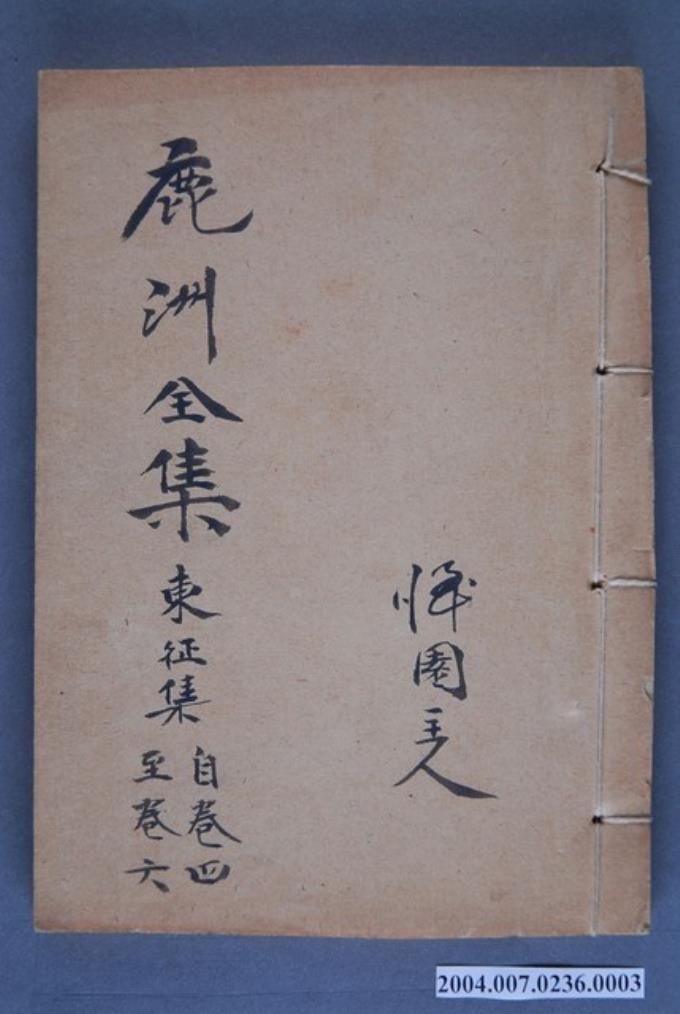 園主人
鹿洲全集 東征集
自卷四
至卷六
2004.007.0236.0003